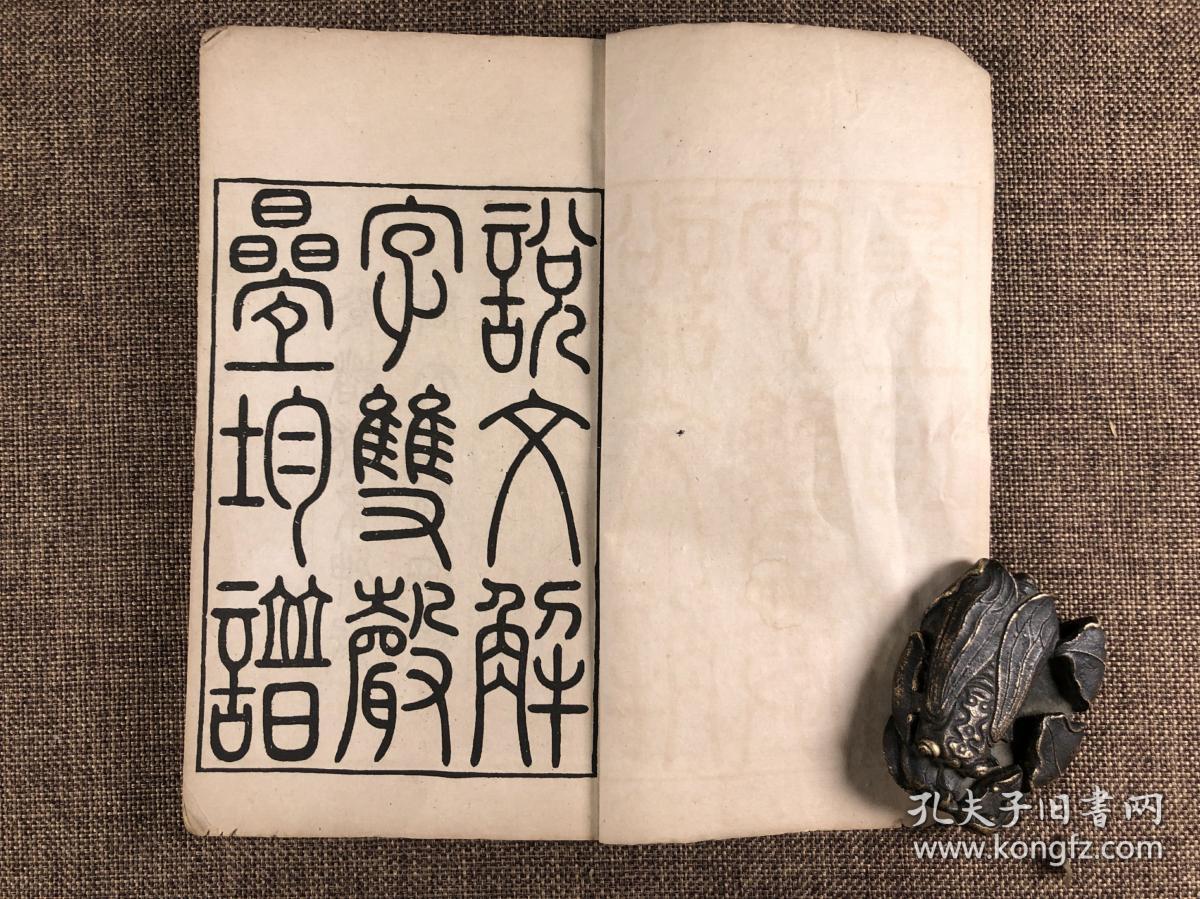 說文解
字雙聲
曡均譜
孔夫子旧書网
www.kongfz.com